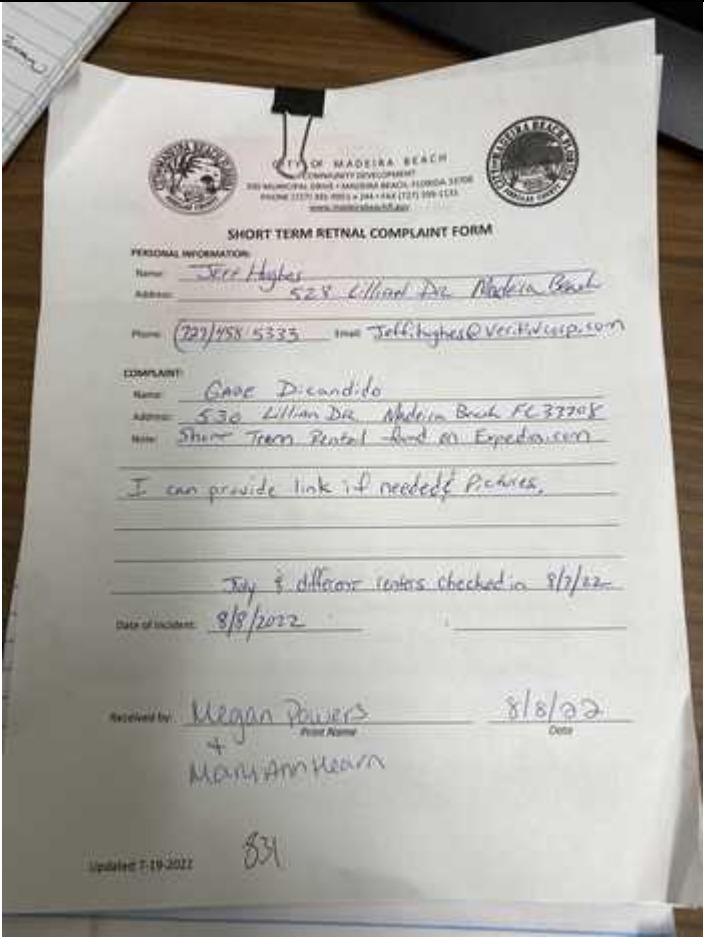 CITY OF MADEIRA BEACH
COMMUNITY DEVELOPMENT
300 MUNICIPAL DRIVE • MADEIRA BEACH, FLORIDA 33708
www.madeirabeachfl.gov
SHORT TERM RETNAL COMPLAINT FORM
PERSONAL INFORMATION:
Name: Jeff Hughes
Address: 528 Lillian Dr. Madeira Beach
Phone: (727) 458 5333 Email: Jeff.hughes@veritivcorp.com
COMPLAINT:
Name: GABE Dicandido
Address: 530 Lillian Dr. Madeira Beach FL 33708
Note: Short Term Rental found on Expedia.com
I can provide link if needed & Pictures.
July & different renters checked in 8/7/22
Date of Incident: 8/8/2022
Received by: Megan Powers 8/8/22
Print Name Date
+
MaryAnn Hearn
Updated 7-19-2022 831